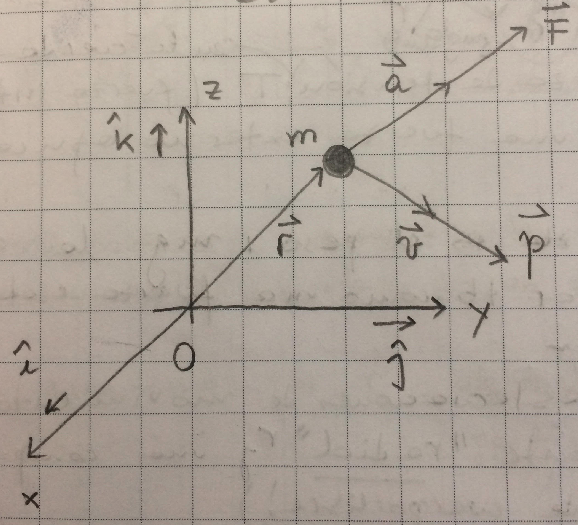 F⃗
a⃗
z
k̂
m
r⃗
v⃗
p⃗
y
O
ĵ
î
x